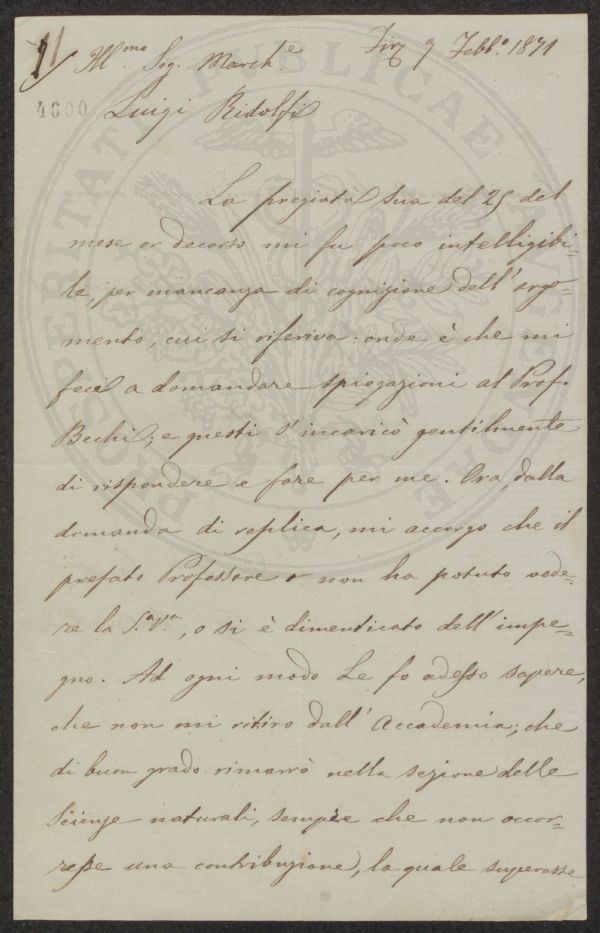 Ill.mo Sig. March.e Fir. 9 Febb.o 1871
4600 Luigi Ridolfi
La pregiata sua del 25 del
mese or decorso mi fu poco intelligibi=
le, per mancanza di cognizione dell'argo=
mento, cui si riferiva: onde è che mi
feci a domandare spiegazioni al Prof.
Bechi; e questi s'incaricò gentilmente
di rispondere e fare per me. Ora, dalla
domanda di replica, mi accorgo che il
prefato Professore o non ha potuto vede=
re la S.a V.a, o si è dimenticato dell'impe=
gno. Ad ogni modo Le fo adesso sapere,
che non mi ritiro dall'Accademia; che
di buon grado rimarrò nella sezione delle
Scienze naturali, sempre che non occor=
resse una contribuzione, la quale superasse
PROSPERITATI PUBLICAE AUGENDAE